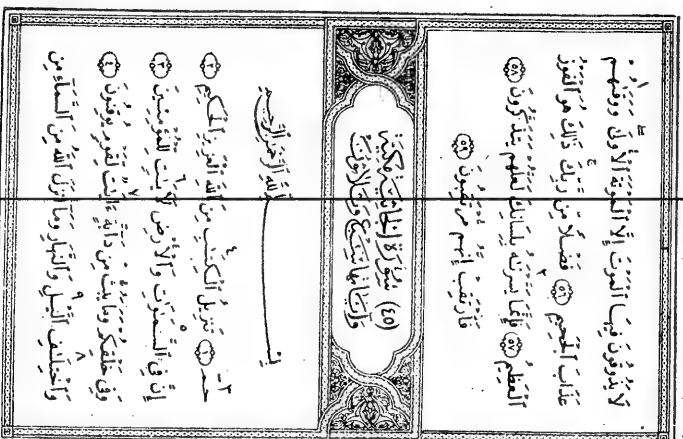 لَا يَذُوقُونَ فِيهَا ٱلْمَوْتَ إِلَّا ٱلْمَوْتَةَ ٱلْأُولَىٰ وَوَقَىٰهُمْ
عَذَابَ ٱلْجَحِيمِ ٥٦ فَضْلًا مِّن رَّبِّكَ ذَٰلِكَ هُوَ ٱلْفَوْزُ
ٱلْعَظِيمُ ٥٧ فَإِنَّمَا يَسَّرْنَٰهُ بِلِسَانِكَ لَعَلَّهُمْ يَتَذَكَّرُونَ ٥٨
فَٱرْتَقِبْ إِنَّهُم مُّرْتَقِبُونَ ٥٩
(٤٥) سُورَةُ الجَاثِيَةِ مَكِيَّة
وَآيَاتُهَا سَبْعٌ وَثَلَاثُونَ
بِسْمِ ٱللَّهِ ٱلرَّحْمَٰنِ ٱلرَّحِيمِ
حمٓ ١ تَنزِيلُ ٱلْكِتَٰبِ مِنَ ٱللَّهِ ٱلْعَزِيزِ ٱلْحَكِيمِ ٢
إِنَّ فِى ٱلسَّمَٰوَٰتِ وَٱلْأَرْضِ لَأٓيَٰتٍ لِّلْمُؤْمِنِينَ ٣
وَفِى خَلْقِكُمْ وَمَا يَبُثُّ مِن دَآبَّةٍ ءَايَٰتٌ لِّقَوْمٍ يُوقِنُونَ ٤
وَٱخْتِلَٰفِ ٱلَّيْلِ وَٱلنَّهَارِ وَمَآ أَنزَلَ ٱللَّهُ مِنَ ٱلسَّمَآءِ مِن